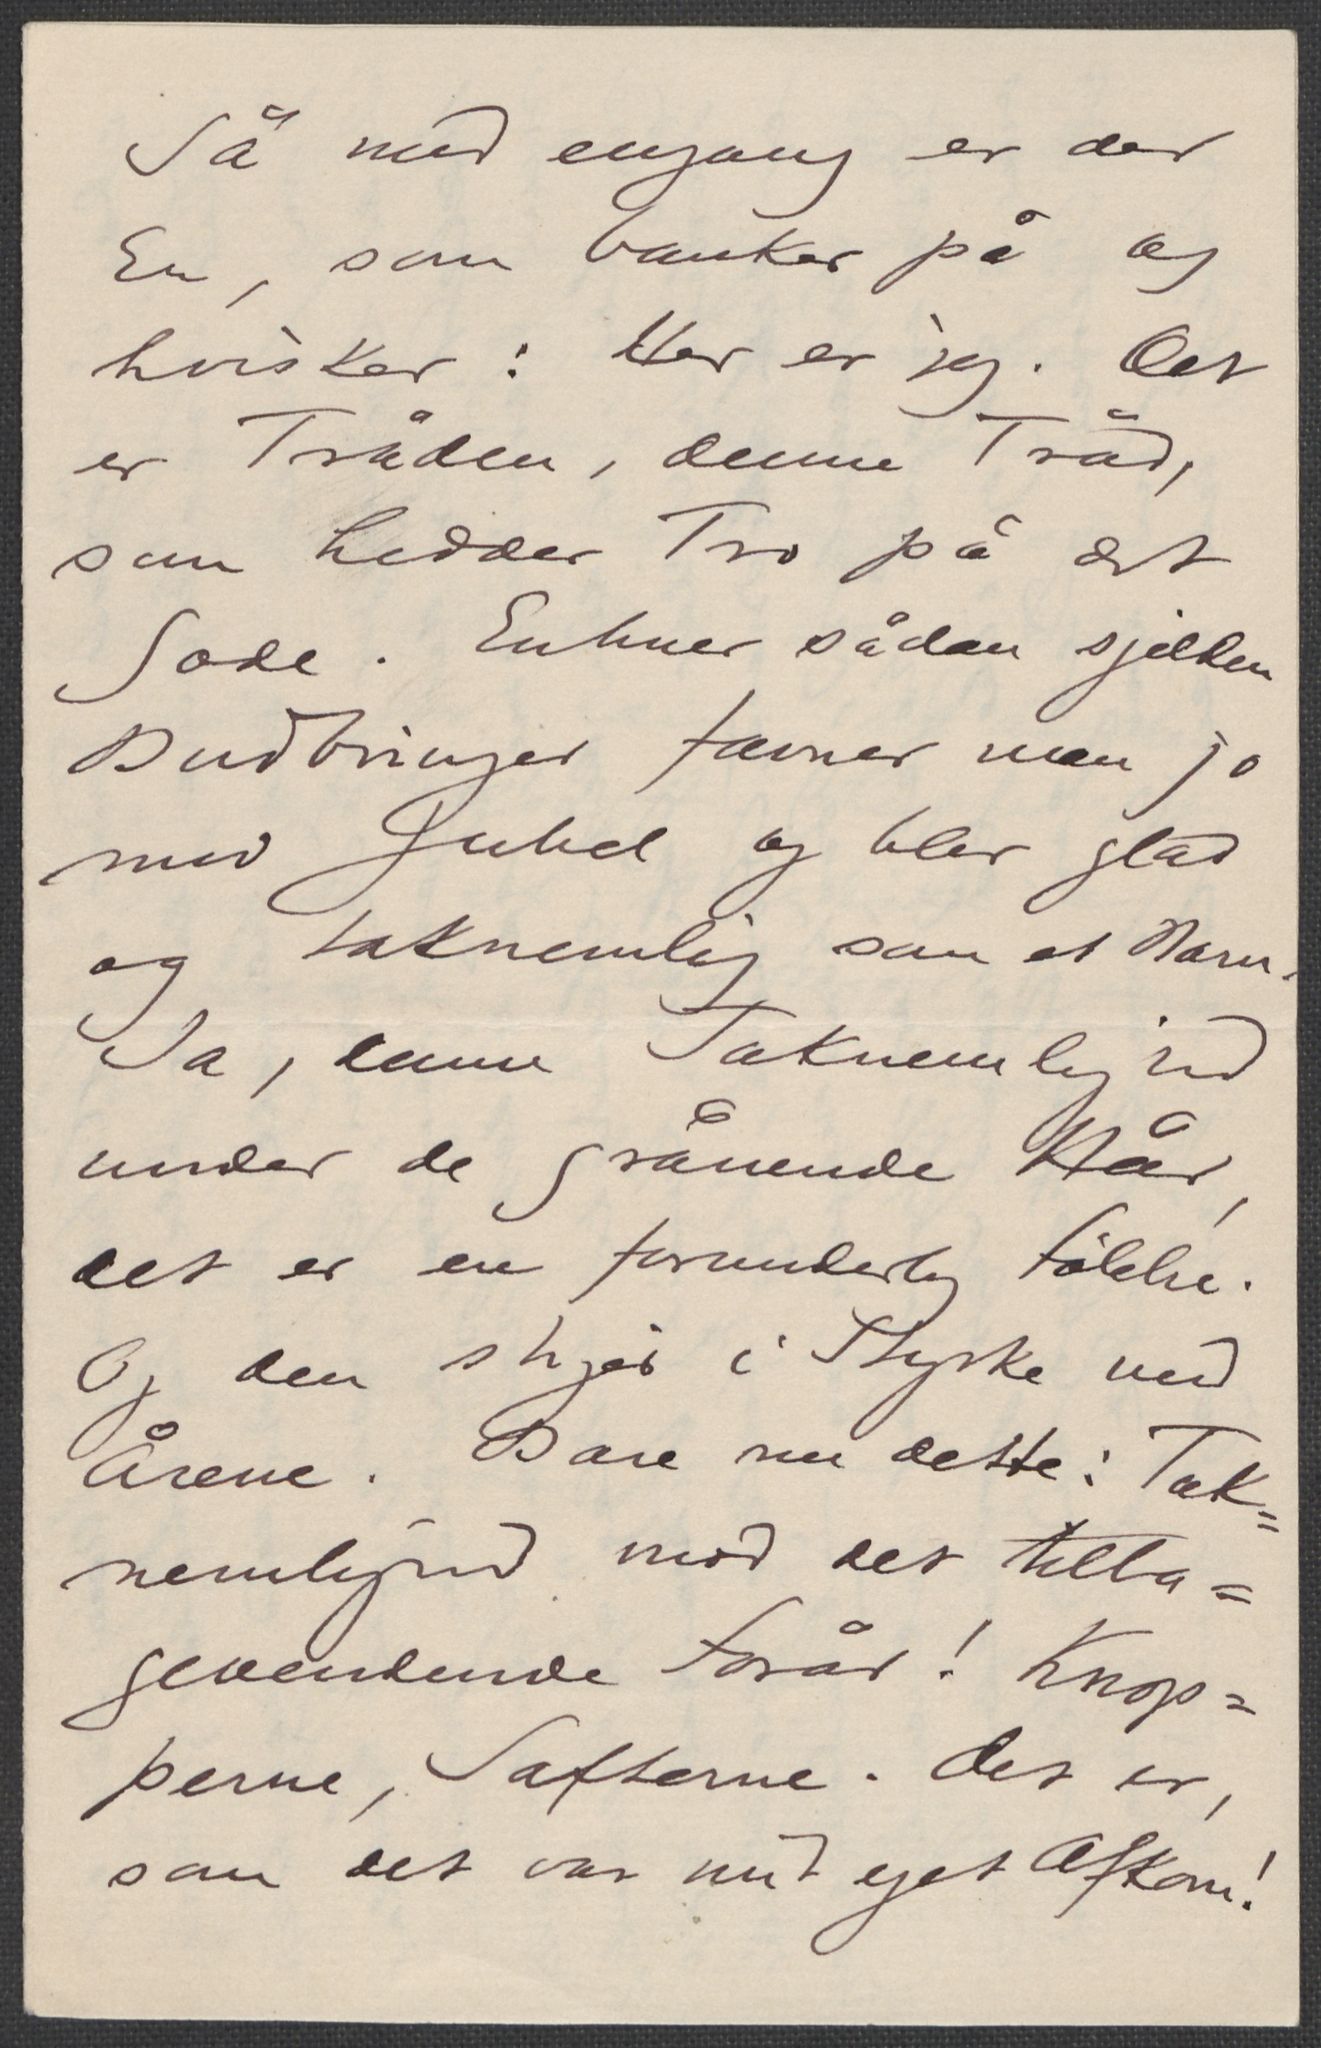 Så med engang er der
En, som banker på og
hvisker: Her er jeg. Det
er Tråden, denne Tråd,
som hedder Tro på det
Gode. Enhver sådan sjelden
Budbringer favner man jo
med Jubel og blir glad
og taknemlig som et Barn.
Ja, denne Taknemlighed
under de grånende Hår,
det er en forunderlig Følelse.
Og den stiger i Styrke med
Årene. Bare nu dette: Tak=
nemlighed mod det tilba=
gevendende Forår! Knop=
perne, Safterne. Det er,
som det var mit eget Afkom!